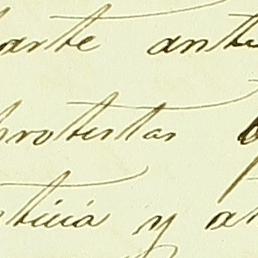 parte ante
protestas
sticia y an